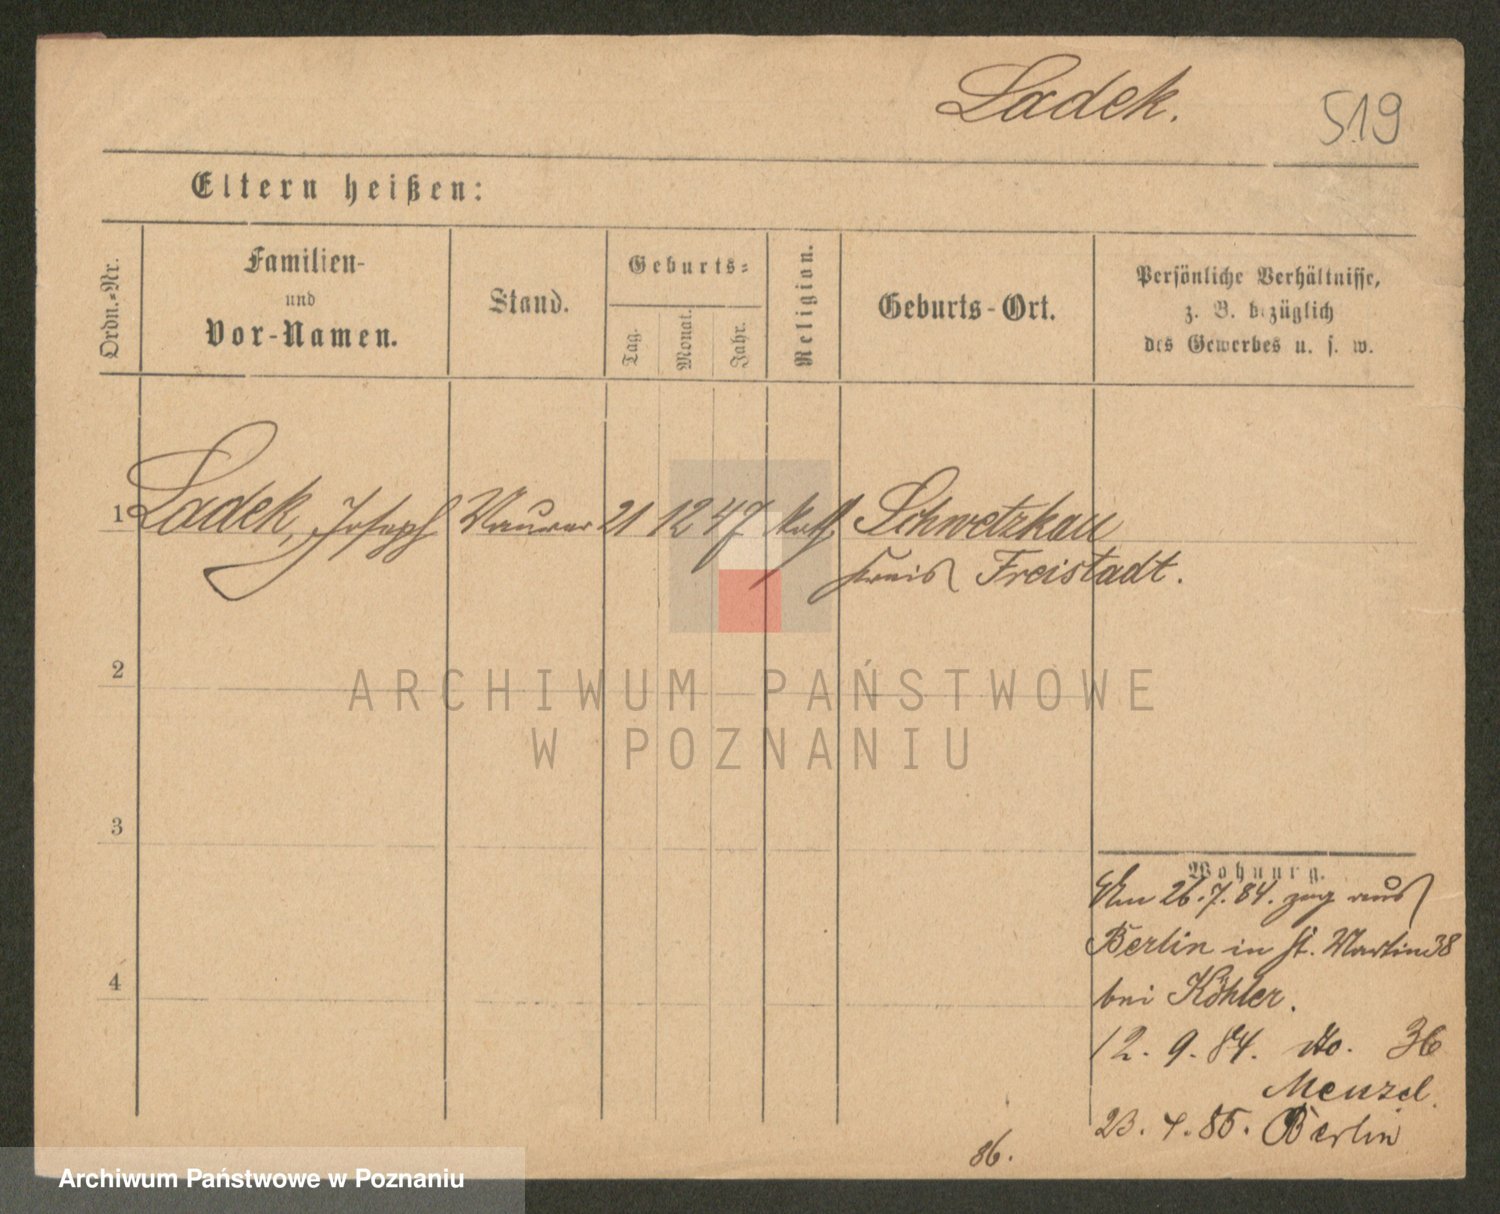 Ladek.
519
Eltern heißen:
Ordn.-Nr.
Familien-
und
Vor-Namen.
Stand.
Geburts-
Tag.
Monat.
Jahr.
Religion.
Geburts-Ort.
Persönliche Verhältnisse,
z. B. bezüglich
des Gewerbes u. s. w.
1 Ladek, Joseph Maurer 21 12 47 kath Schwetzkau
Kreis Freistadt.
2
3
4
ARCHIWUM PAŃSTWOWE
W POZNANIU
Wohnung.
Am 26.7.84. zog aus
Berlin in St. Martin 38
bei Köhler.
12. 9. 84. do. 36
Menzel.
23. 4. 85. Berlin
86.
Archiwum Państwowe w Poznaniu